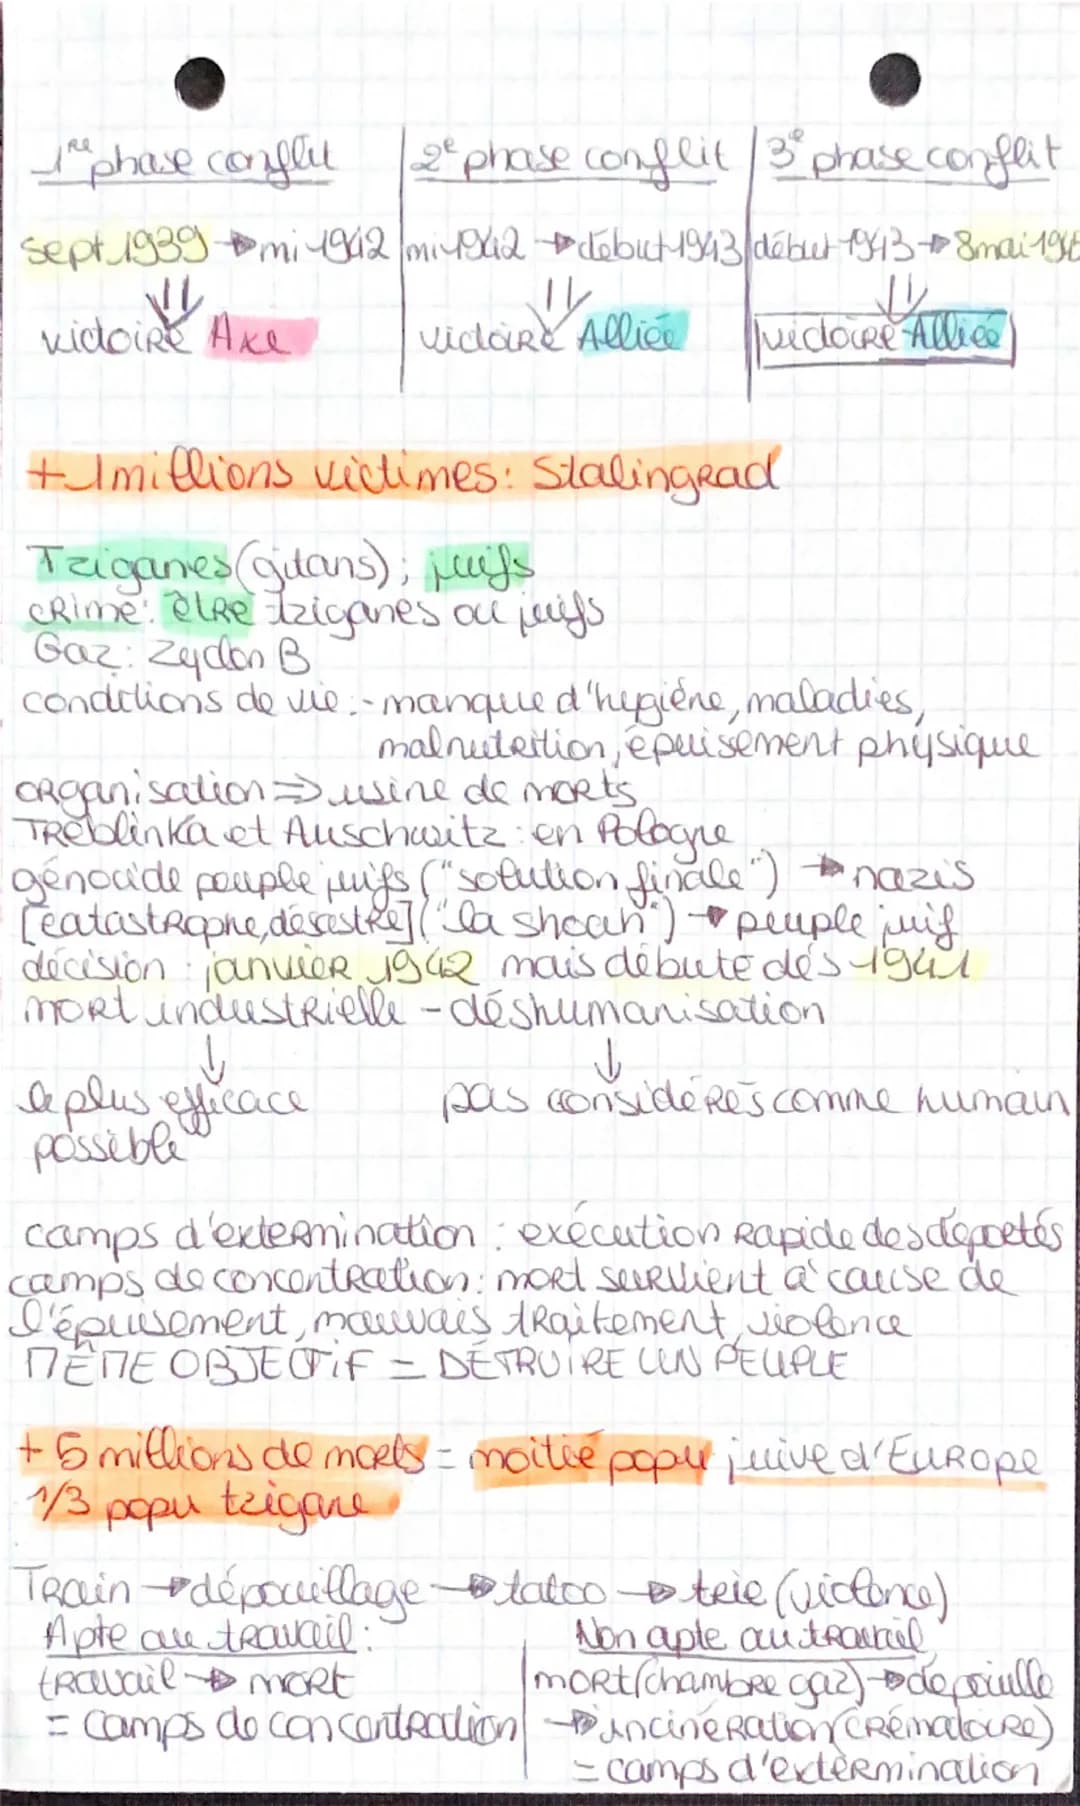 1re phase conflit
sept 1939 → mi-1942
victoire Axe
2e phase conflit
mi-1942 → début 1943
victoire Alliée
3e phase conflit
début 1943 → 8 mai 194
victoire Alliée
+ 1 millions victimes : Stalingrad
Tziganes (gitans) ; juifs
crime : être tziganes ou juifs
Gaz : Zyclon B
conditions de vie : - manque d'hygiène, maladies,
malnutrition, épuisement physique
organisation ⇒ usine de morts
Treblinka et Auschwitz : en Pologne
génocide peuple juifs ("solution finale") → nazis
[catastrophe, désastre] ("la shoah") → peuple juif
décision : janvier 1942 mais débute dès 1941
mort industrielle - déshumanisation
↓ ↓
le plus efficace pas considérés comme humain
possible
camps d'extermination : exécution rapide des déportés
camps de concentration : mort survient à cause de
l'épuisement, mauvais traitement, violence
MÊME OBJECTIF = DÉTRUIRE UN PEUPLE
+ 5 millions de morts = moitié popu juive d'Europe
1/3 popu tzigane
Train → dépouillage → tatoo → trie (violence)
Apte au travail :
travail → mort
= camps de concentration
Non apte au travail
mort (chambre gaz) → dépouille
→ incinération (crématoire)
= camps d'extermination